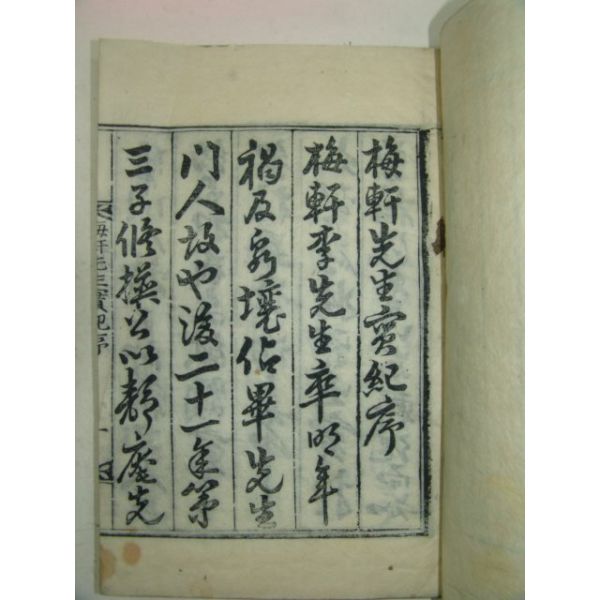 梅軒先生實紀序
梅軒李先生卒明年
禍及泉壤佔畢先生
門人故也後二十一年第
三子脩撰公以先
梅軒先生實紀序 一